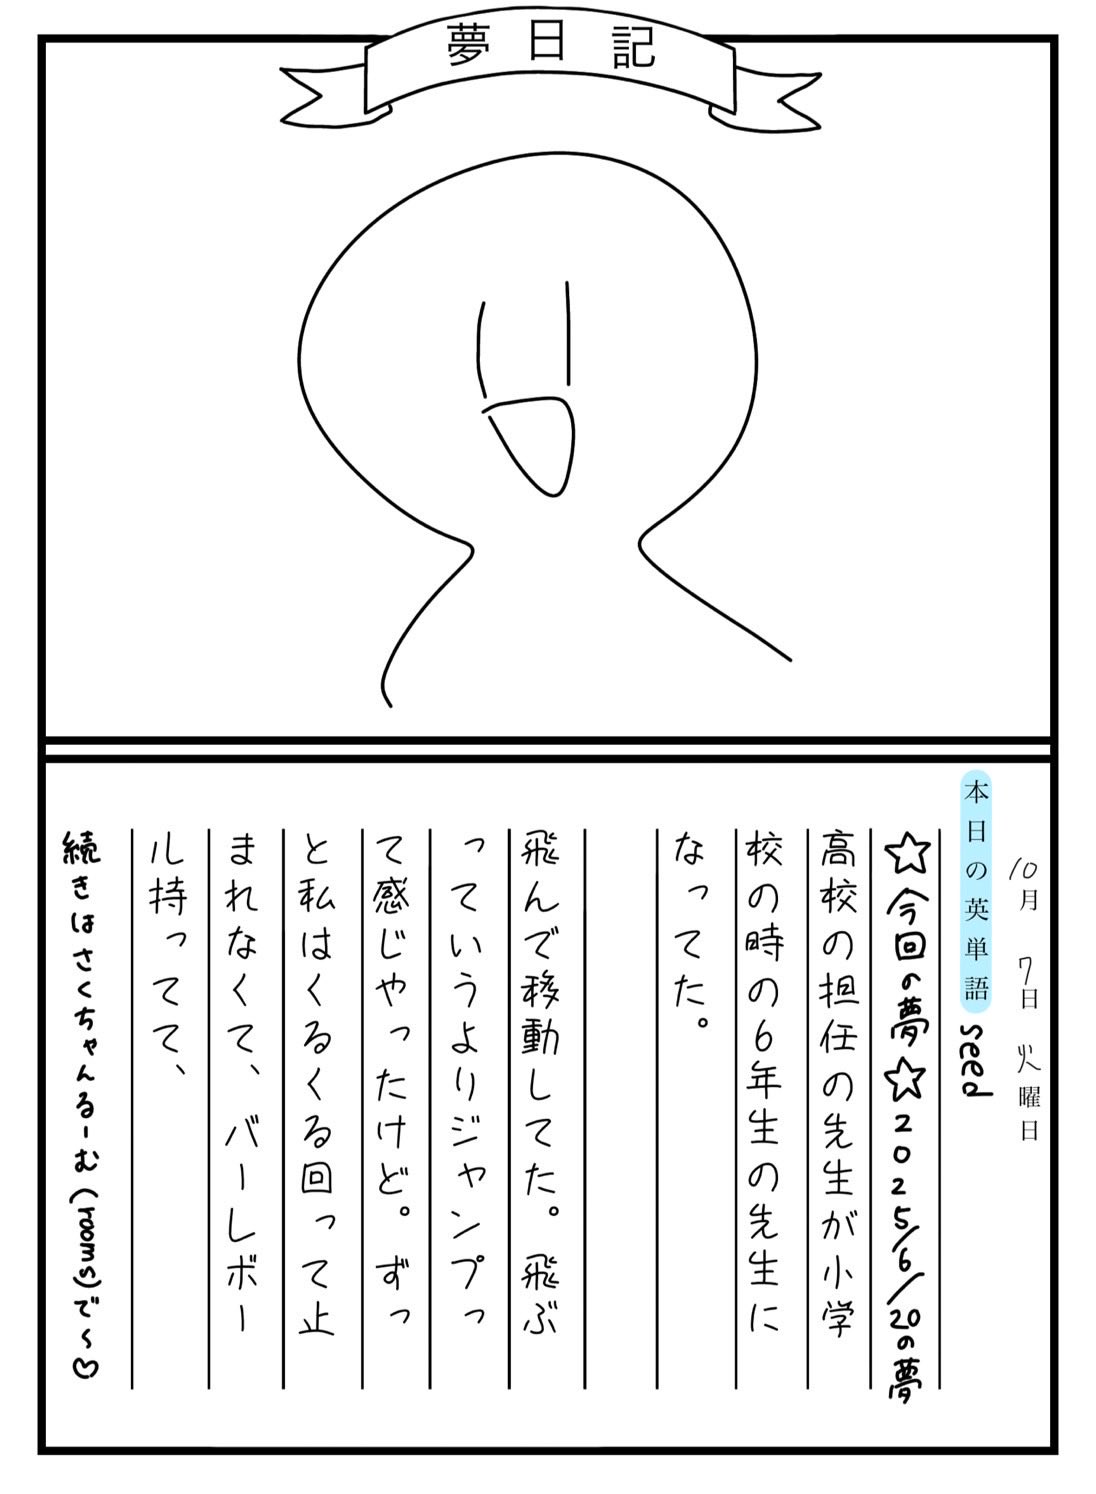 夢日記
10月 7日 火曜日
本日の英単語 seed
☆今回の夢☆2025/6/20の夢
高校の担任の先生が小学
校の時の6年生の先生に
なってた。
飛んで移動してた。飛ぶ
っていうよりジャンプっ
て感じやったけど。ずっ
と私はくるくる回って止
まれなくて、バーレボー
ル持ってて、
続きはさくちゃんるーむ(rooms)で~♡